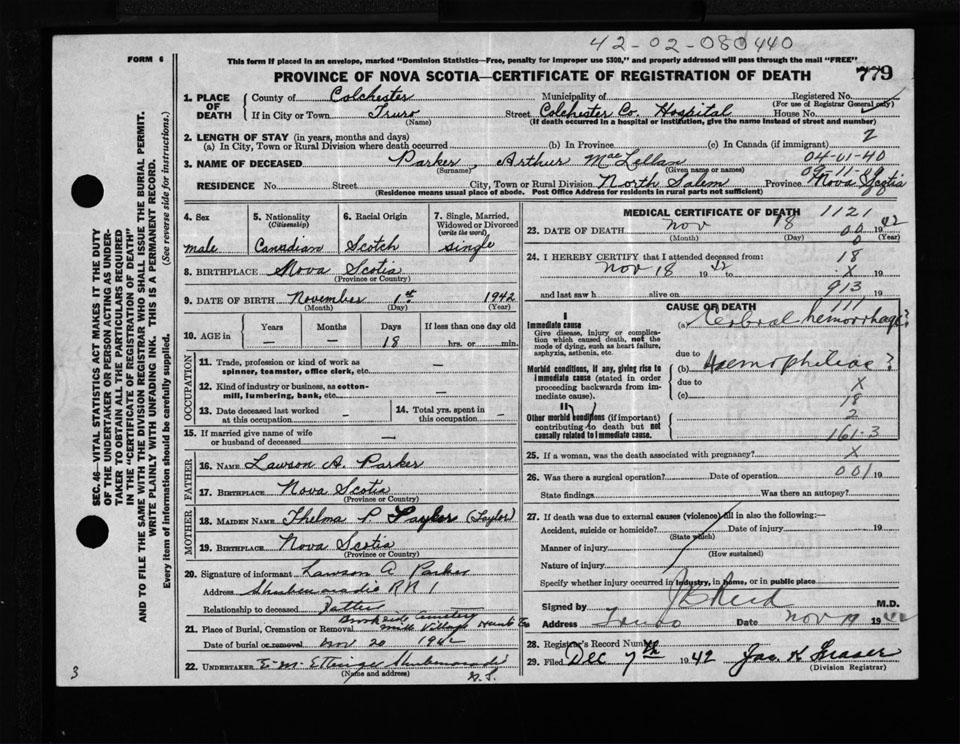 42-02-080440
FORM 6
This form if placed in an envelope, marked "Dominion Statistics—Free, penalty for improper use $300," and properly addressed will pass through the mail "FREE"
PROVINCE OF NOVA SCOTIA—CERTIFICATE OF REGISTRATION OF DEATH 779
1. PLACE OF DEATH County of Colchester Municipality of Registered No.
(For use of Registrar General only)
If in City or Town Truro Street Colchester Co. Hospital House No.
(Name) (If death occurred in a hospital or institution, give the name instead of street and number)
2. LENGTH OF STAY (in years, months and days) 2
(a) In City, Town or Rural Division where death occurred (b) In Province (c) In Canada (if immigrant)
3. NAME OF DECEASED Parker, Arthur MacLellan 04-01-40
(Surname) (Given name or names) 09-11-
RESIDENCE No. Street City, Town or Rural Division North Salem Province Nova Scotia
(Residence means usual place of abode. Post Office Address for residents in rural parts not sufficient)
4. Sex male
5. Nationality (Citizenship) Canadian
6. Racial Origin Scotch
7. Single, Married, Widowed or Divorced (write the word) single
8. BIRTHPLACE Nova Scotia
(Province or Country)
9. DATE OF BIRTH November 1st 1942
(Month) (Day) (Year)
10. AGE in Years Months Days If less than one day old
— — 18 hrs. or min.
OCCUPATION
11. Trade, profession or kind of work as spinner, teamster, office clerk, etc. —
12. Kind of industry or business, as cotton-mill, lumbering, bank, etc. —
13. Date deceased last worked at this occupation —
14. Total yrs. spent in this occupation —
15. If married give name of wife or husband of deceased —
FATHER
16. NAME Lawson A. Parker
17. BIRTHPLACE Nova Scotia
(Province or Country)
MOTHER
18. MAIDEN NAME Thelma P. Taylor (Taylor)
19. BIRTHPLACE Nova Scotia
(Province or Country)
20. Signature of informant Lawson A. Parker
Address Shubenacadie RR 1
Relationship to deceased Father
Brookside Cemetery
21. Place of Burial, Cremation or Removal Mill Village Hants Co
Date of burial or removal Nov 20 1942
22. UNDERTAKER E. M. Ettinger Shubenacadie
(Name and address) N.S.
MEDICAL CERTIFICATE OF DEATH 1121
23. DATE OF DEATH Nov 18 00 1942
(Month) (Day) 0 (Year)
24. I HEREBY CERTIFY that I attended deceased from: 18
Nov 18 1942 to X 19
and last saw h alive on 913 19
CAUSE OF DEATH 111
I
Immediate cause (a) Cerbral hemorrhage?
Give disease, injury or complication which caused death, not the mode of dying, such as heart failure, asphyxia, asthenia, etc.
due to
Morbid conditions, if any, giving rise to immediate cause (stated in order proceeding backwards from immediate cause).
(b) Haemophiliac?
due to X
(c) 18
II
Other morbid conditions (if important) contributing to death but not causally related to immediate cause.
2
161-3
25. If a woman, was the death associated with pregnancy? X
26. Was there a surgical operation? Date of operation 001 19
State findings Was there an autopsy?
27. If death was due to external causes (violence) fill in also the following:—
Accident, suicide or homicide? Date of injury 19
(State which)
Manner of injury
(How sustained)
Nature of injury
Specify whether injury occurred in industry, in home, or in public place
Signed by J B Reid M.D.
Address Truro Date Nov 19 1942
28. Registrar's Record Number
29. Filed Dec 7th 1942 Jas. K Fraser
(Division Registrar)
SEC. 46—VITAL STATISTICS ACT MAKES IT THE DUTY
OF THE UNDERTAKER OR PERSON ACTING AS UNDER-
TAKER TO OBTAIN ALL THE PARTICULARS REQUIRED
IN THE "CERTIFICATE OF REGISTRATION OF DEATH"
AND TO FILE THE SAME WITH THE DIVISION REGISTRAR WHO SHALL ISSUE THE BURIAL PERMIT.
WRITE PLAINLY WITH UNFADING INK. THIS IS A PERMANENT RECORD.
Every item of information should be carefully supplied. (See reverse side for instructions.)
3